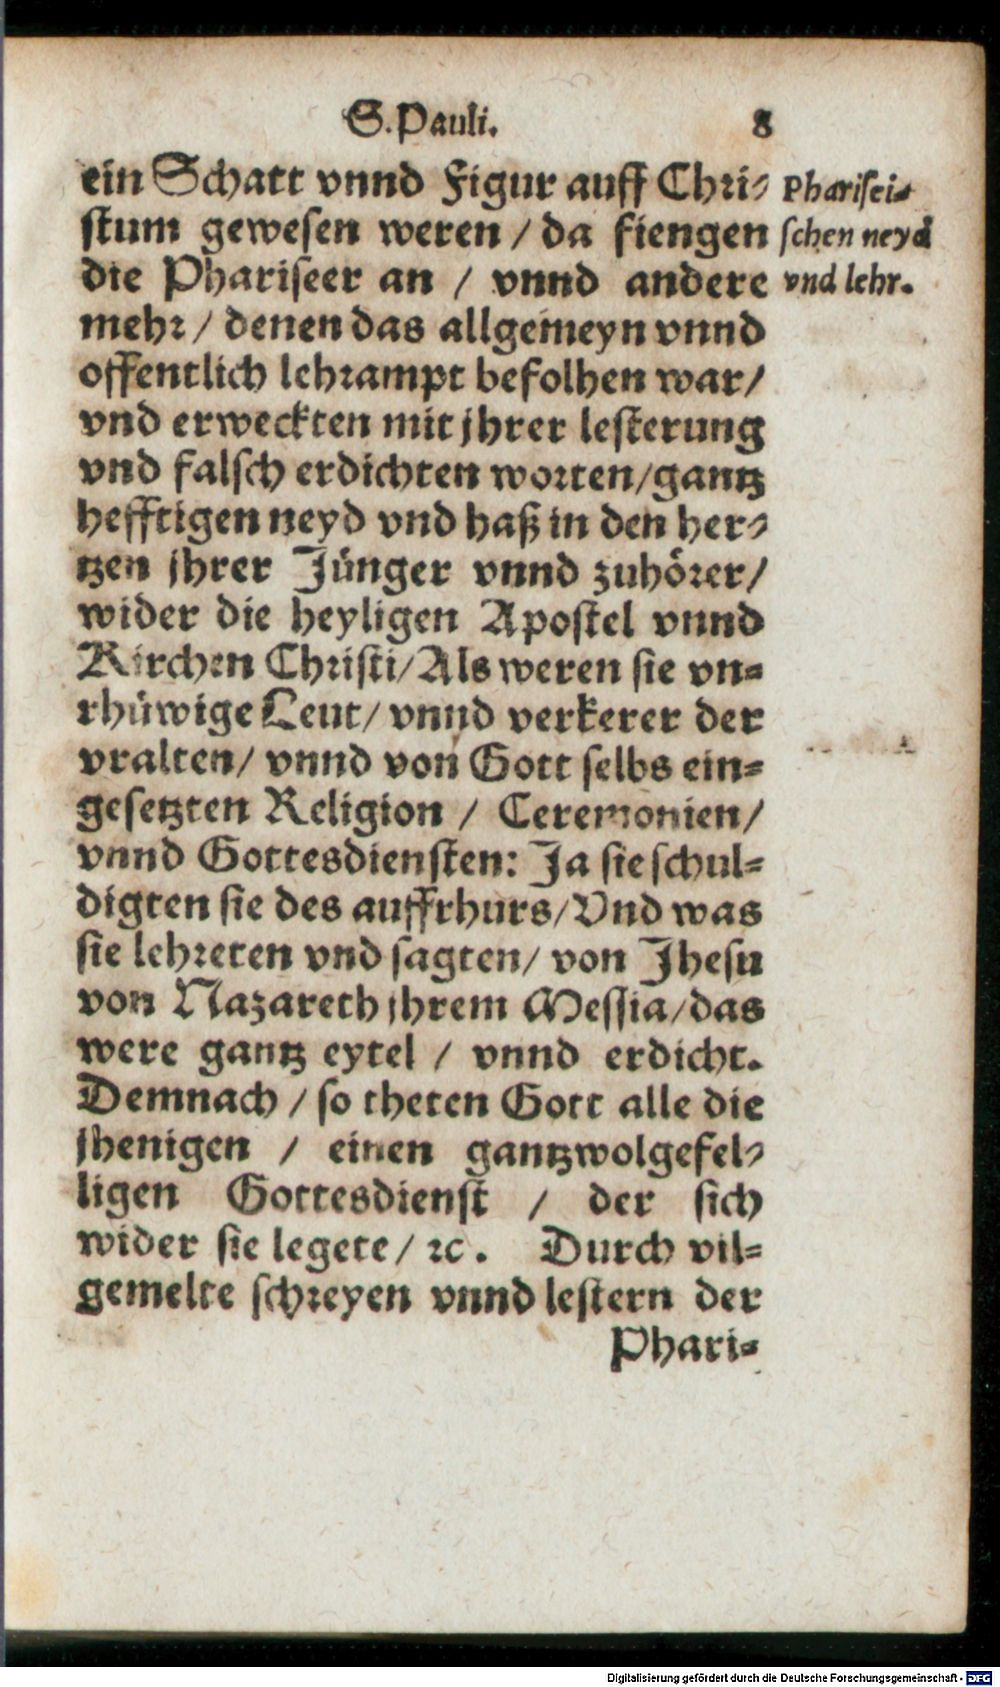 S. Pauli. 8
ein Schatt vnnd Figur auff Chri-
stum gewesen weren / da fiengen
die Phariseer an / vnnd andere
mehr / denen das allgemeyn vnnd
offentlich lehrampt befolhen war /
vnd erweckten mit jhrer lesterung
vnd falsch erdichten worten / gantz
hefftigen neyd vnd haß in den her-
tzen jhrer Jünger vnnd zuhörer /
wider die heyligen Apostel vnnd
Kirchen Christi / Als weren sie vn-
rhüwige Leut / vnnd verkerer der
vralten / vnnd von Gott selbs ein-
gesetzten Religion / Ceremonien /
vnnd Gottesdiensten: Ja sie schul-
digten sie des auffrhurs / Vnd was
sie lehreten vnd sagten / von Jhesu
von Nazareth jhrem Messia / das
were gantz eytel / vnnd erdicht.
Demnach / so theten Gott alle die
jhenigen / einen gantzwolgefel-
ligen Gottesdienst / der sich
wider sie legete / ꝛc. Durch vil-
gemelte schreyen vnnd lestern der
Phari-
Pharisei-
schen neyd
vnd lehr.
Digitalisierung gefördert durch die Deutsche Forschungsgemeinschaft - DFG